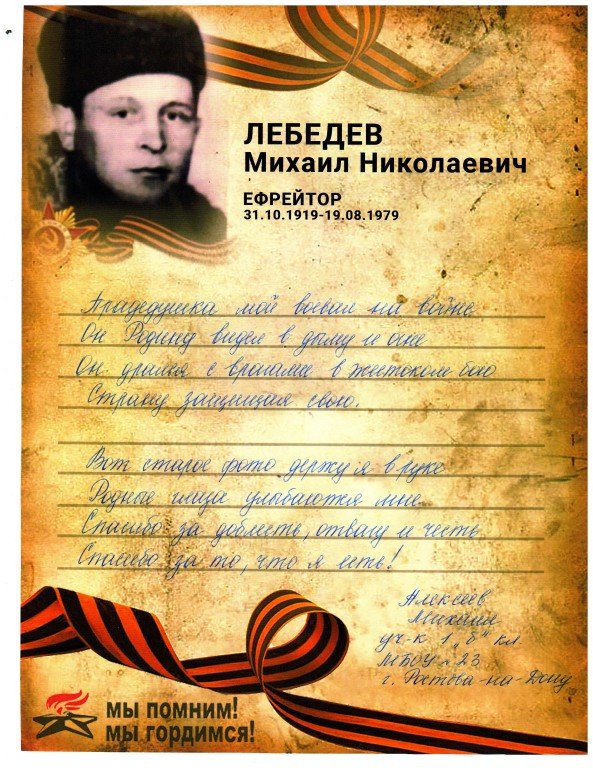 ЛЕБЕДЕВ
Михаил Николаевич
ЕФРЕЙТОР
31.10.1919-19.08.1979
Прадедушка мой воевал на войне
Он Родину видел в дыму и огне
Он дрался с врагами в жестоком бою
Страну защищая свою.
Вот старое фото держу я в руке
Родные глаза улыбаются мне
Спасибо за доблесть, отвагу и честь
Спасибо за то, что я есть!
Алексеев
Михаил
уч-к 1 „б" кл
МБОУ №23
г. Ростова-на-Дону
мы помним!
мы гордимся!